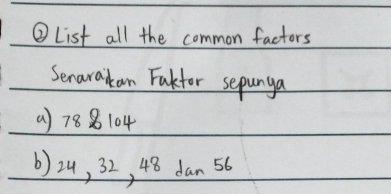 ② List all the common factors
Senaraikan Faktor sepunya
a) 78 & 104
b) 24, 32, 48 dan 56